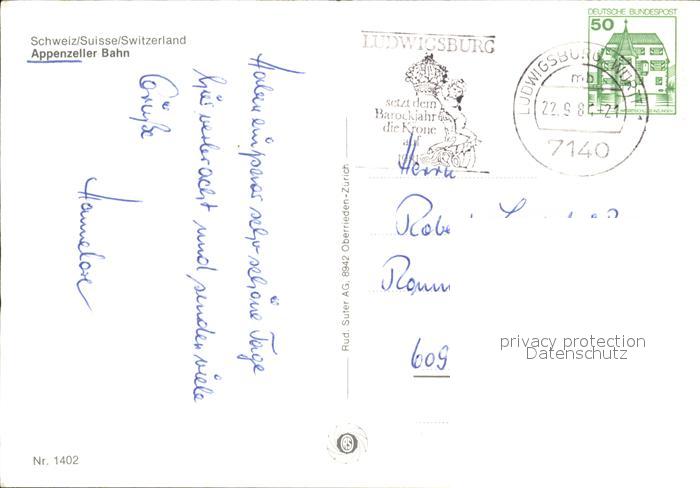 Schweiz/Suisse/Switzerland
Appenzeller Bahn
Haben ein paar sehr schöne Tage
hier verbracht und senden viele
Grüße
Hannelore
Nr. 1402
Rud. Suter AG, 8942 Oberrieden-Zürich
LUDWIGSBURG
setzt dem
Barockjahr
die Krone
auf
1981
DEUTSCHE BUNDESPOST
50
LUDWIGSBURG, WÜRTT
mb
22.9.81-21
7140
Herrn
Robe
609
privacy protection
Datenschutz